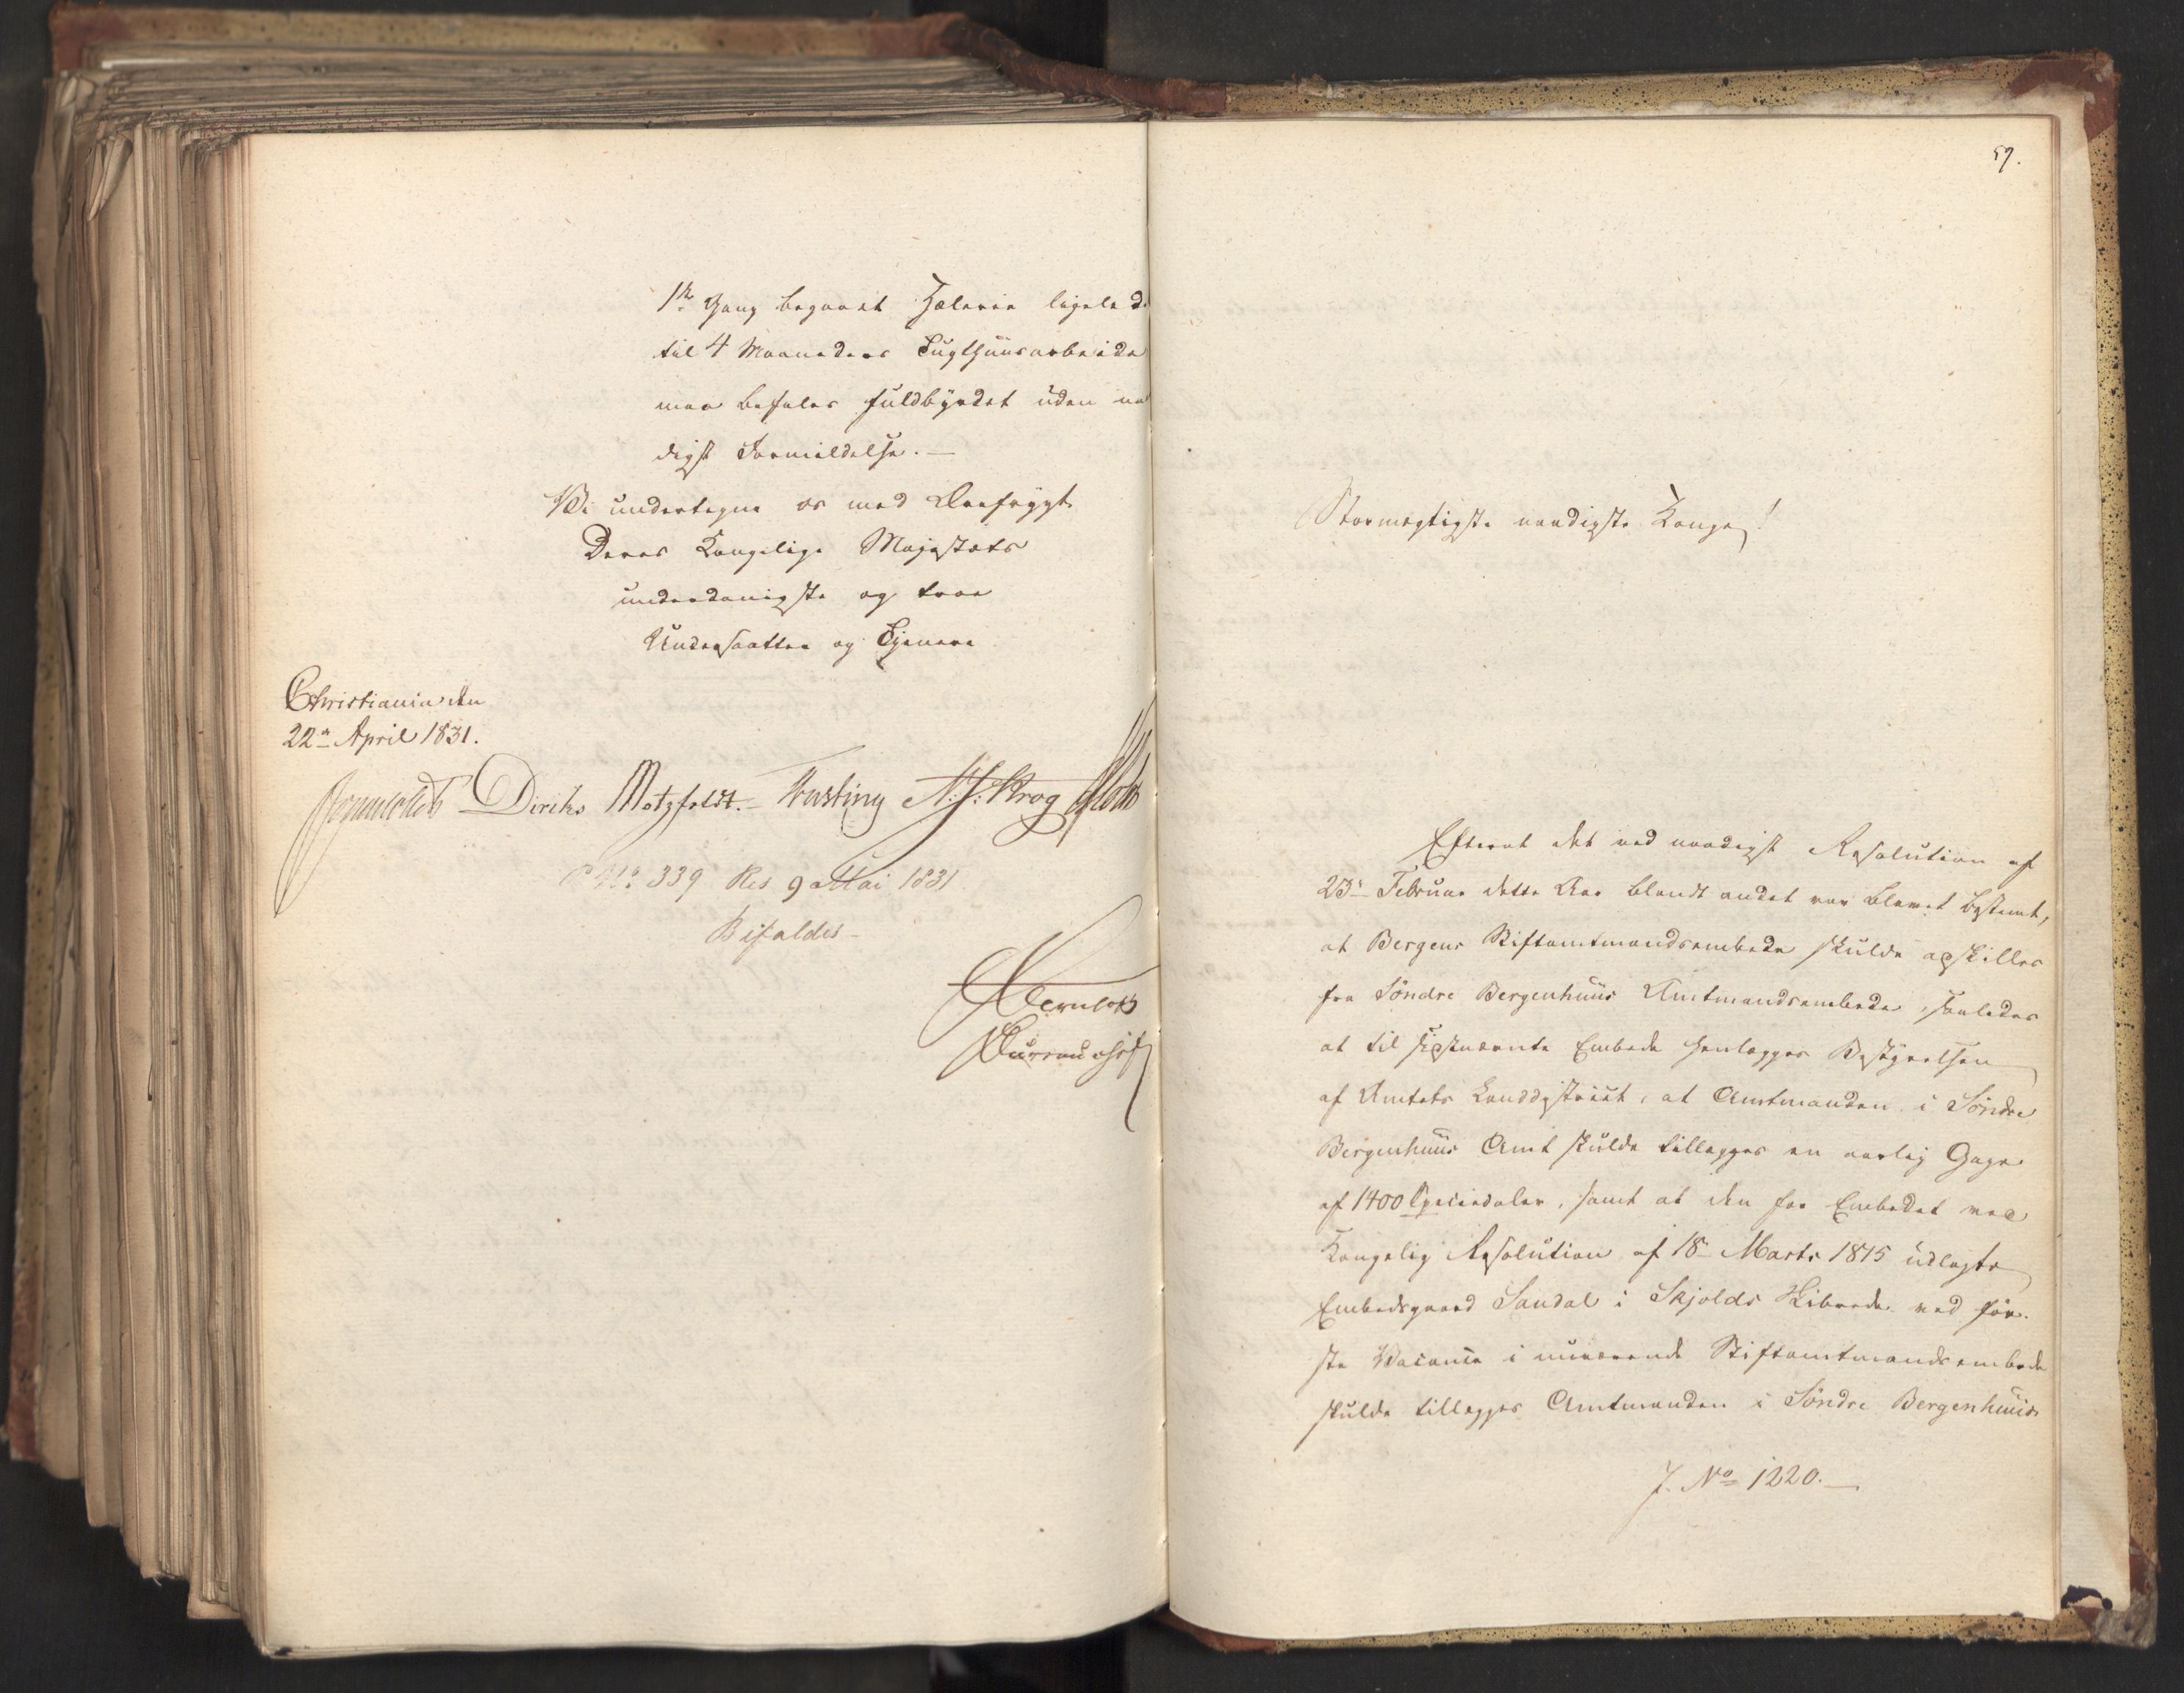 1ste Gang begaaet Hæleri ligeled
til 4 Maaneders Tugthuusarbeide
maa befales fuldbyrdet uden naa
digst Formildelse. —
Vi undertegne os med Ærefrygt
Deres Kongelige Majestæts
underdanigste og troe
Undersaatter og Tjenere
Christiania den
22de April 1831.
Diriks Motzfeldt. Fasting N. J. Krog
No. 339 Res 9 Mai 1831
Bifaldes
57.
Stormægtigste naadigste Konge!
Efterat det ved naadigst Resolution af
23de Februar dette Aar blandt andet var blevet bestemt,
at Bergens Stiftamtmandsembede skulde adskilles
fra Søndre Bergenhuus Amtmandsembede, saaledes
at til sidstnævnte Embede henlægges Bestyrelsen
af Amtets Landdistrict, at Amtmanden i Søndre
Bergenhuus Amt skulde tillægges en aarlig Gage
af 1400 Speciedaler, samt at den for Embedet ved
Kongelig Resolution af 18de Marts 1815 udlagte
Embedsgaard Sandal i Skjolds Skibrede ved før-
ste Vacance i nuværende Stiftamtmandsembede
skulde tillægges Amtmanden i Søndre Bergenhuus
J. No 1220. —